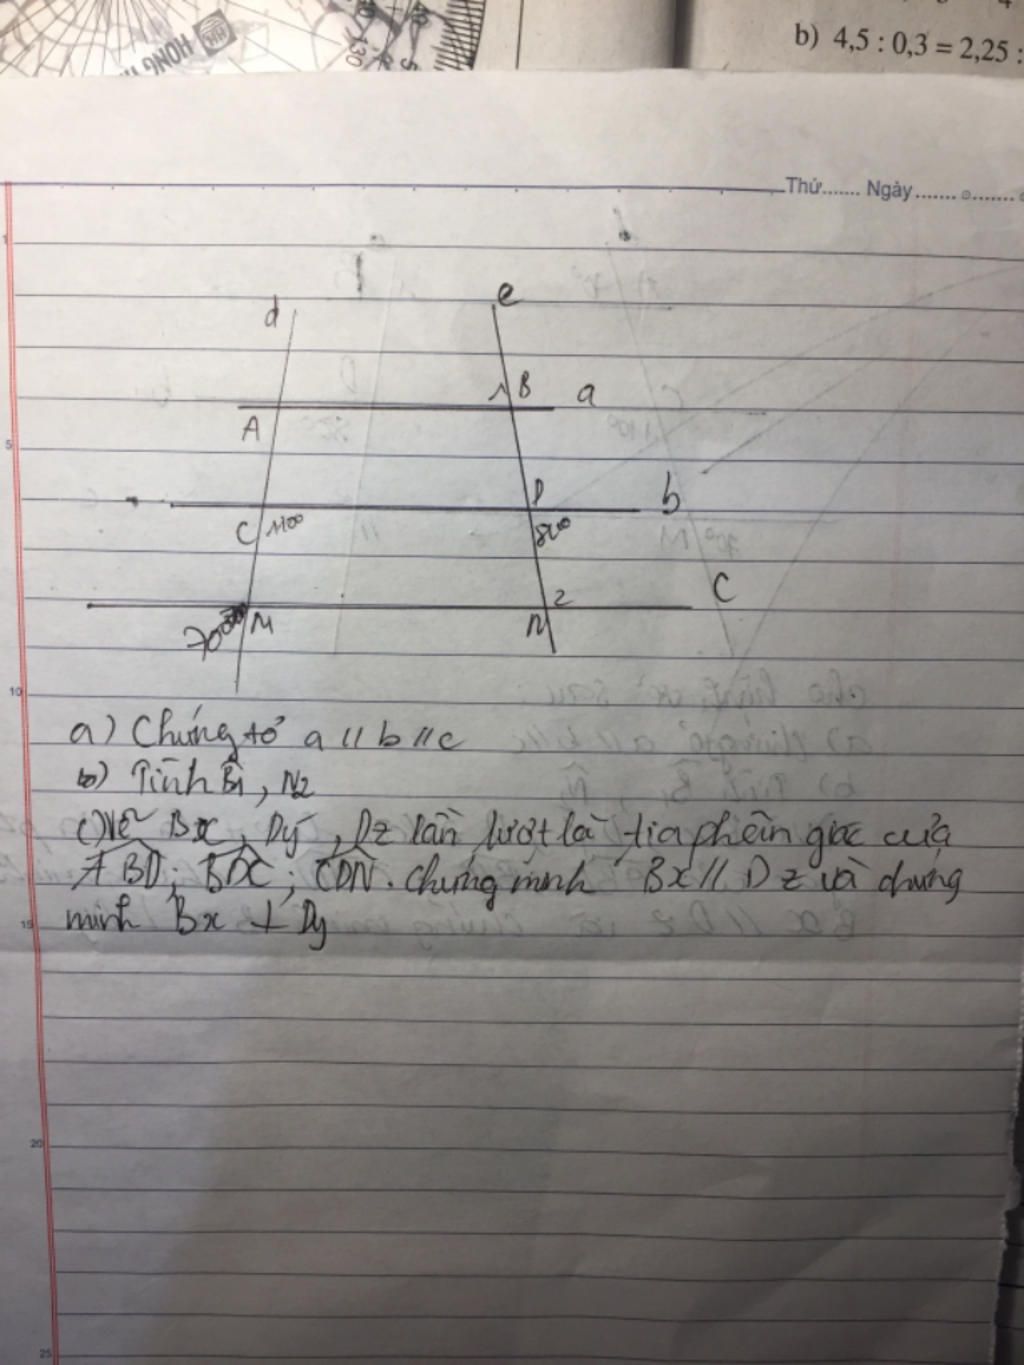 b) 4,5 : 0,3 = 2,25 :
HONG
Thứ....... Ngày
1
d
e
1 B a
A
5
D b
C 110°
M N 2 C
70°
10
a) Chứng tỏ a // b // c
b) Tính B1, N2
c) Vẽ Bx, Dy, Dz lần lượt là tia phân giác của
ABD; BDC; CDN. Chứng minh Bx // Dz và chứng
minh Bx ⊥ Dy
15
20
25